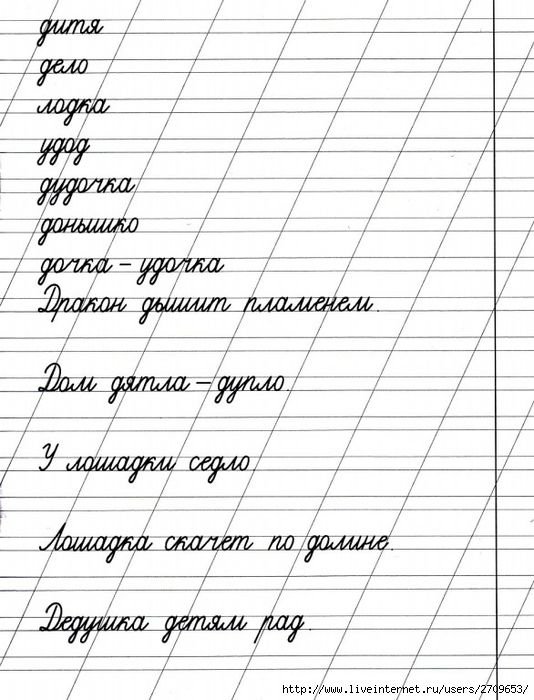 дитя
дело
лодка
удод
дудочка
донышко
дочка – удочка
Дракон дышит пламенем.
Дом дятла – дупло.
У лошадки седло.
Лошадка скачет по долине.
Дедушка детям рад.
http://www.liveinternet.ru/users/2709653/